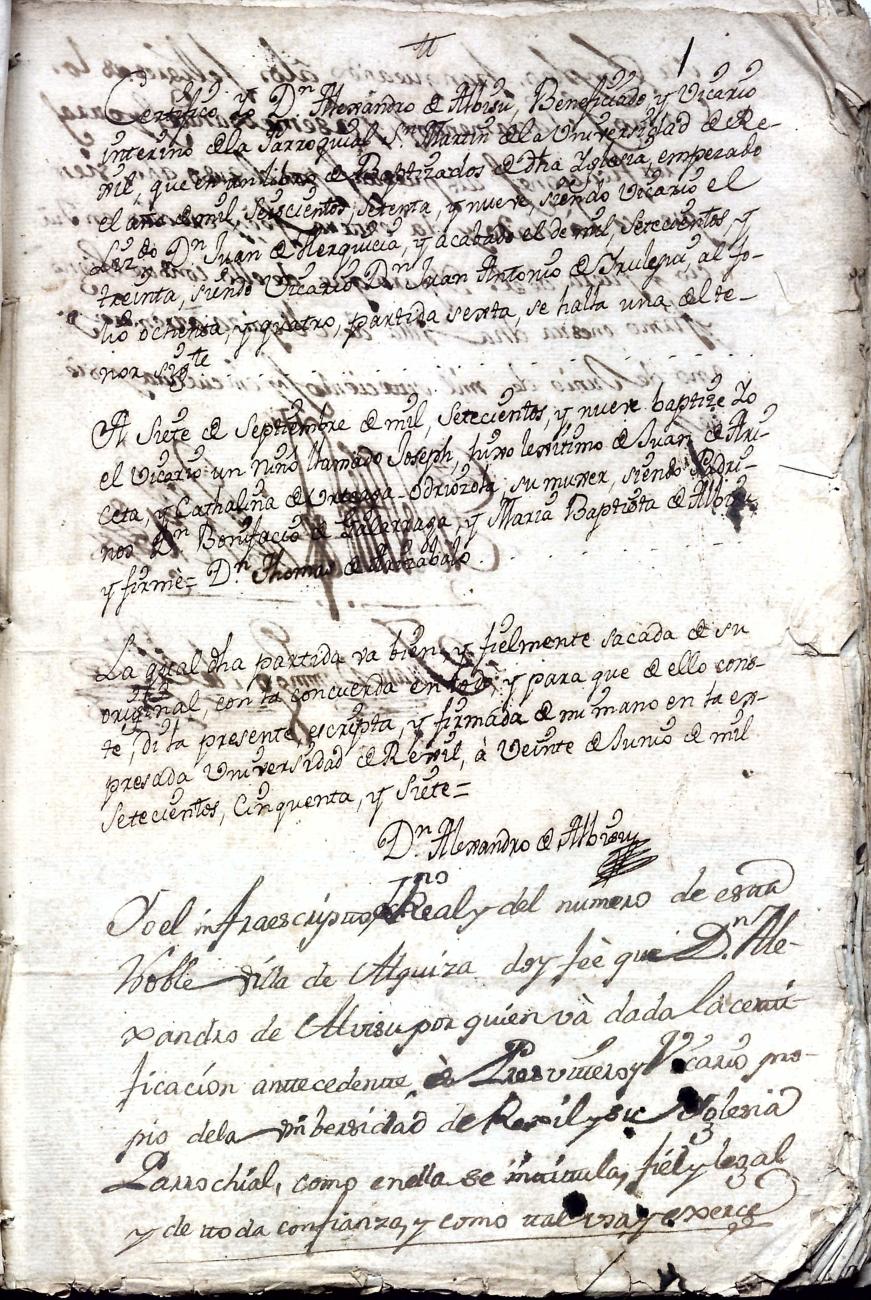 1
Certifico yo Dn. Alexandro de Albisu, Beneficiado, y Vicario
interino de la Parroquial Sn. Martin de la Universidad de Re-
xil, que en un libro de Baptizados de dha Iglesia, empezado
el año de mil, Seiscientos, setenta, y nueve, siendo Vicario el
Lizdo Dn. Juan de Herquicia, y acabado el de mil, Setecientos, y
treinta, siendo Vicario Dn. Juan Antonio de Irulegui, al fo-
lio ochenta, y quatro, partida sexta, se halla una del te-
nor sigte
A Siete de Septiembre de mil, Setecientos, y nueve baptize Yo
el Vicario un niño llamado Joseph, hixo lexitimo de Juan de Ari-
ceta, y Cathalina de Urteaga-Odriozola, su muxer, siendo Padri-
nos Dn. Bonifacio de y Maria Baptista de Albisu
y firmè= Dn. Thomas de
La qual dha partida va bien, y fielmente sacada de su
original, con la concuerda en todo, y para que de ello cons-
te, di la presente, escripta, y firmada de mi mano en la ex-
presada Universidad de Rexil, à Veinte de Junio de mil
Setecientos, Cinquenta, y Siete=
Dn. Alexandro de Albisu
Yo el infraescripto Real y del numero de esta
Noble Villa de Alquiza doy feè que Dn. Ale-
xandro de Alvisu por quien và dada la certi-
ficación antecedente es Presvitero y Vicario pro-
pio dela Unibersidad de Rexil y su Yglesia
Parrochial, como en ella se intitula, fiel y legal
y de toda confianza, y como tal usa y exerce